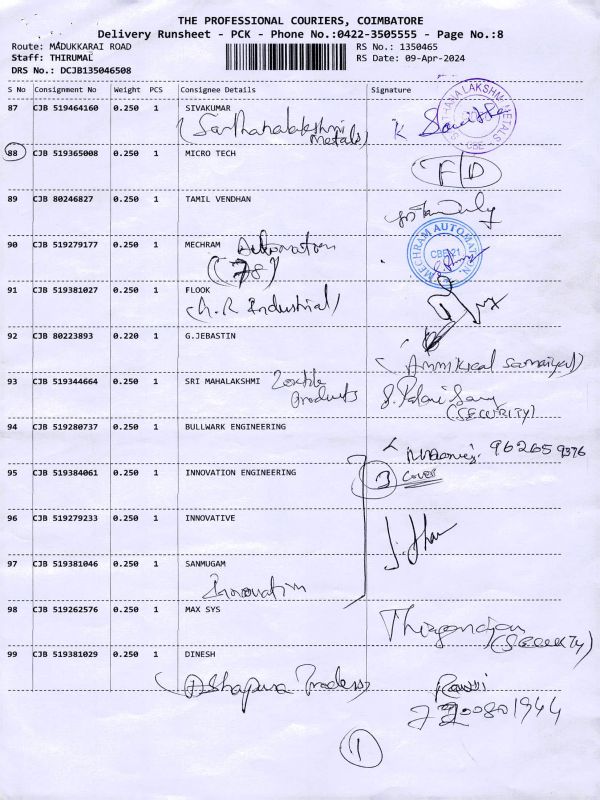 THE PROFESSIONAL COURIERS, COIMBATORE
Delivery Runsheet - PCK - Phone No.:0422-3505555 - Page No.:8
Route: MADUKKARAI ROAD
RS No.: 1350465
Staff: THIRUMAL
RS Date: 09-Apr-2024
DRS No.: DCJB135046508
S No Consignment No Weight PCS Consignee Details Signature
87 CJB 519464160 0.250 1 SIVAKUMAR
(Santhanalakshmi
Metals)
88 CJB 519365008 0.250 1 MICRO TECH
F/D
89 CJB 80246827 0.250 1 TAMIL VENDHAN
90 CJB 519279177 0.250 1 MECHRAM Automation
(78)
MECHRAM AUTOMATION
CBE-21
91 CJB 519381027 0.250 1 FLOOK
Industrial)
92 CJB 80223893 0.220 1 G.JEBASTIN
93 CJB 519344664 0.250 1 SRI MAHALAKSHMI Textile
Products
S. Palani Samy
(SECURITY)
94 CJB 519280737 0.250 1 BULLWARK ENGINEERING
95 CJB 519384061 0.250 1 INNOVATION ENGINEERING
3 cover
96 CJB 519279233 0.250 1 INNOVATIVE
97 CJB 519381046 0.250 1 SANMUGAM
Innovation
98 CJB 519262576 0.250 1 MAX SYS
(SECURITY)
99 CJB 519381029 0.250 1 DINESH
(Ashapura
1